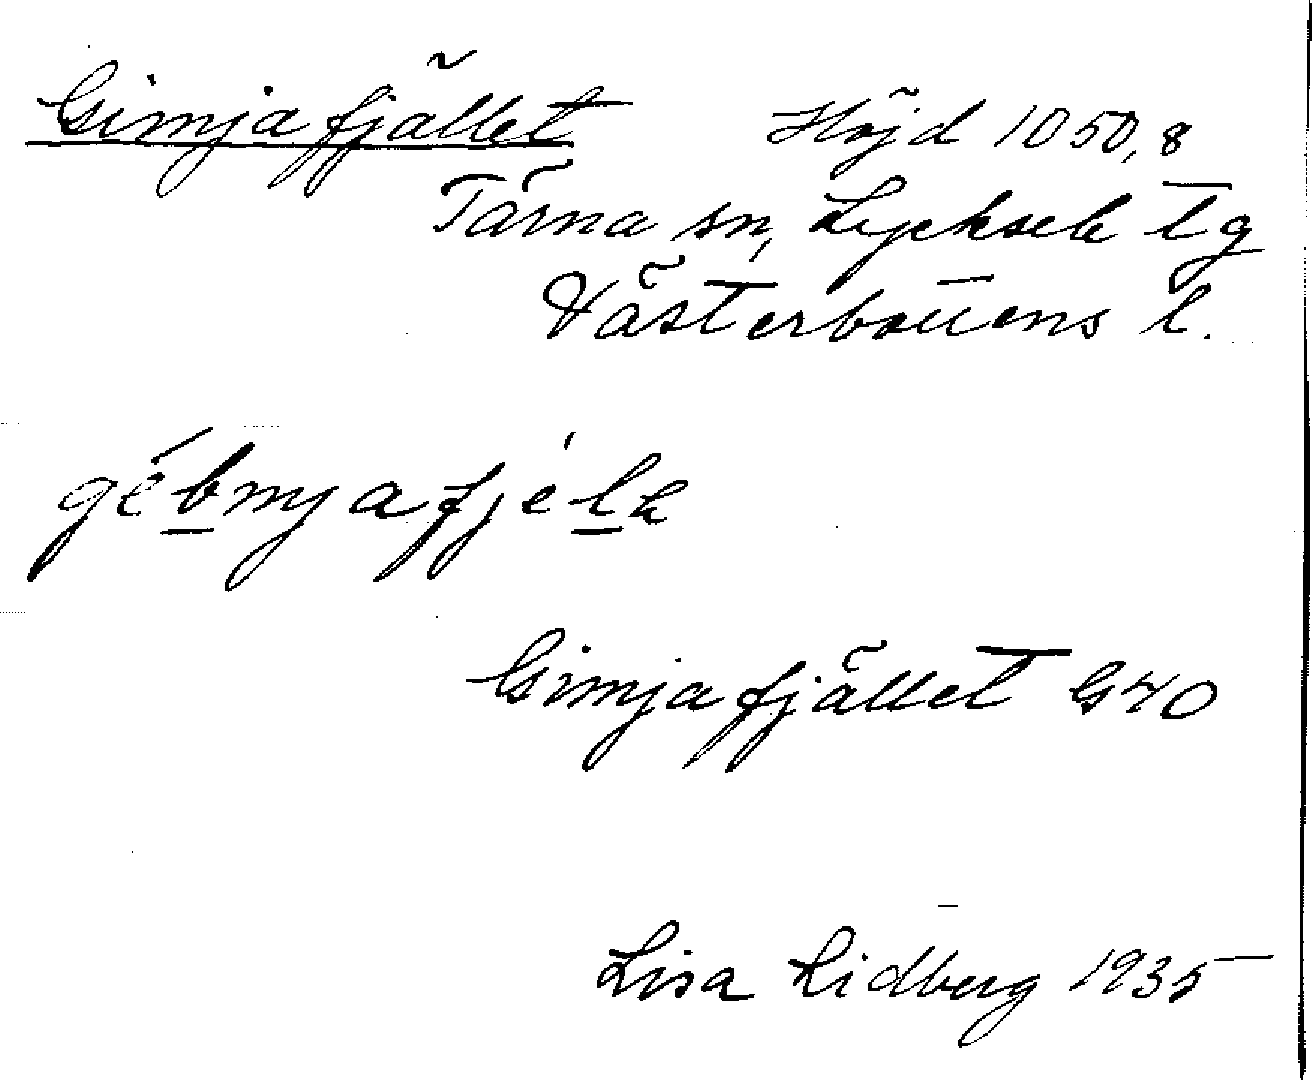 Gimjafjället Höjd 1050,8
Tärna sn, Lycksele tg
Västerbottens l.
gèbmjafjélk
Gimjafjället G40
Lisa Lidberg 1935